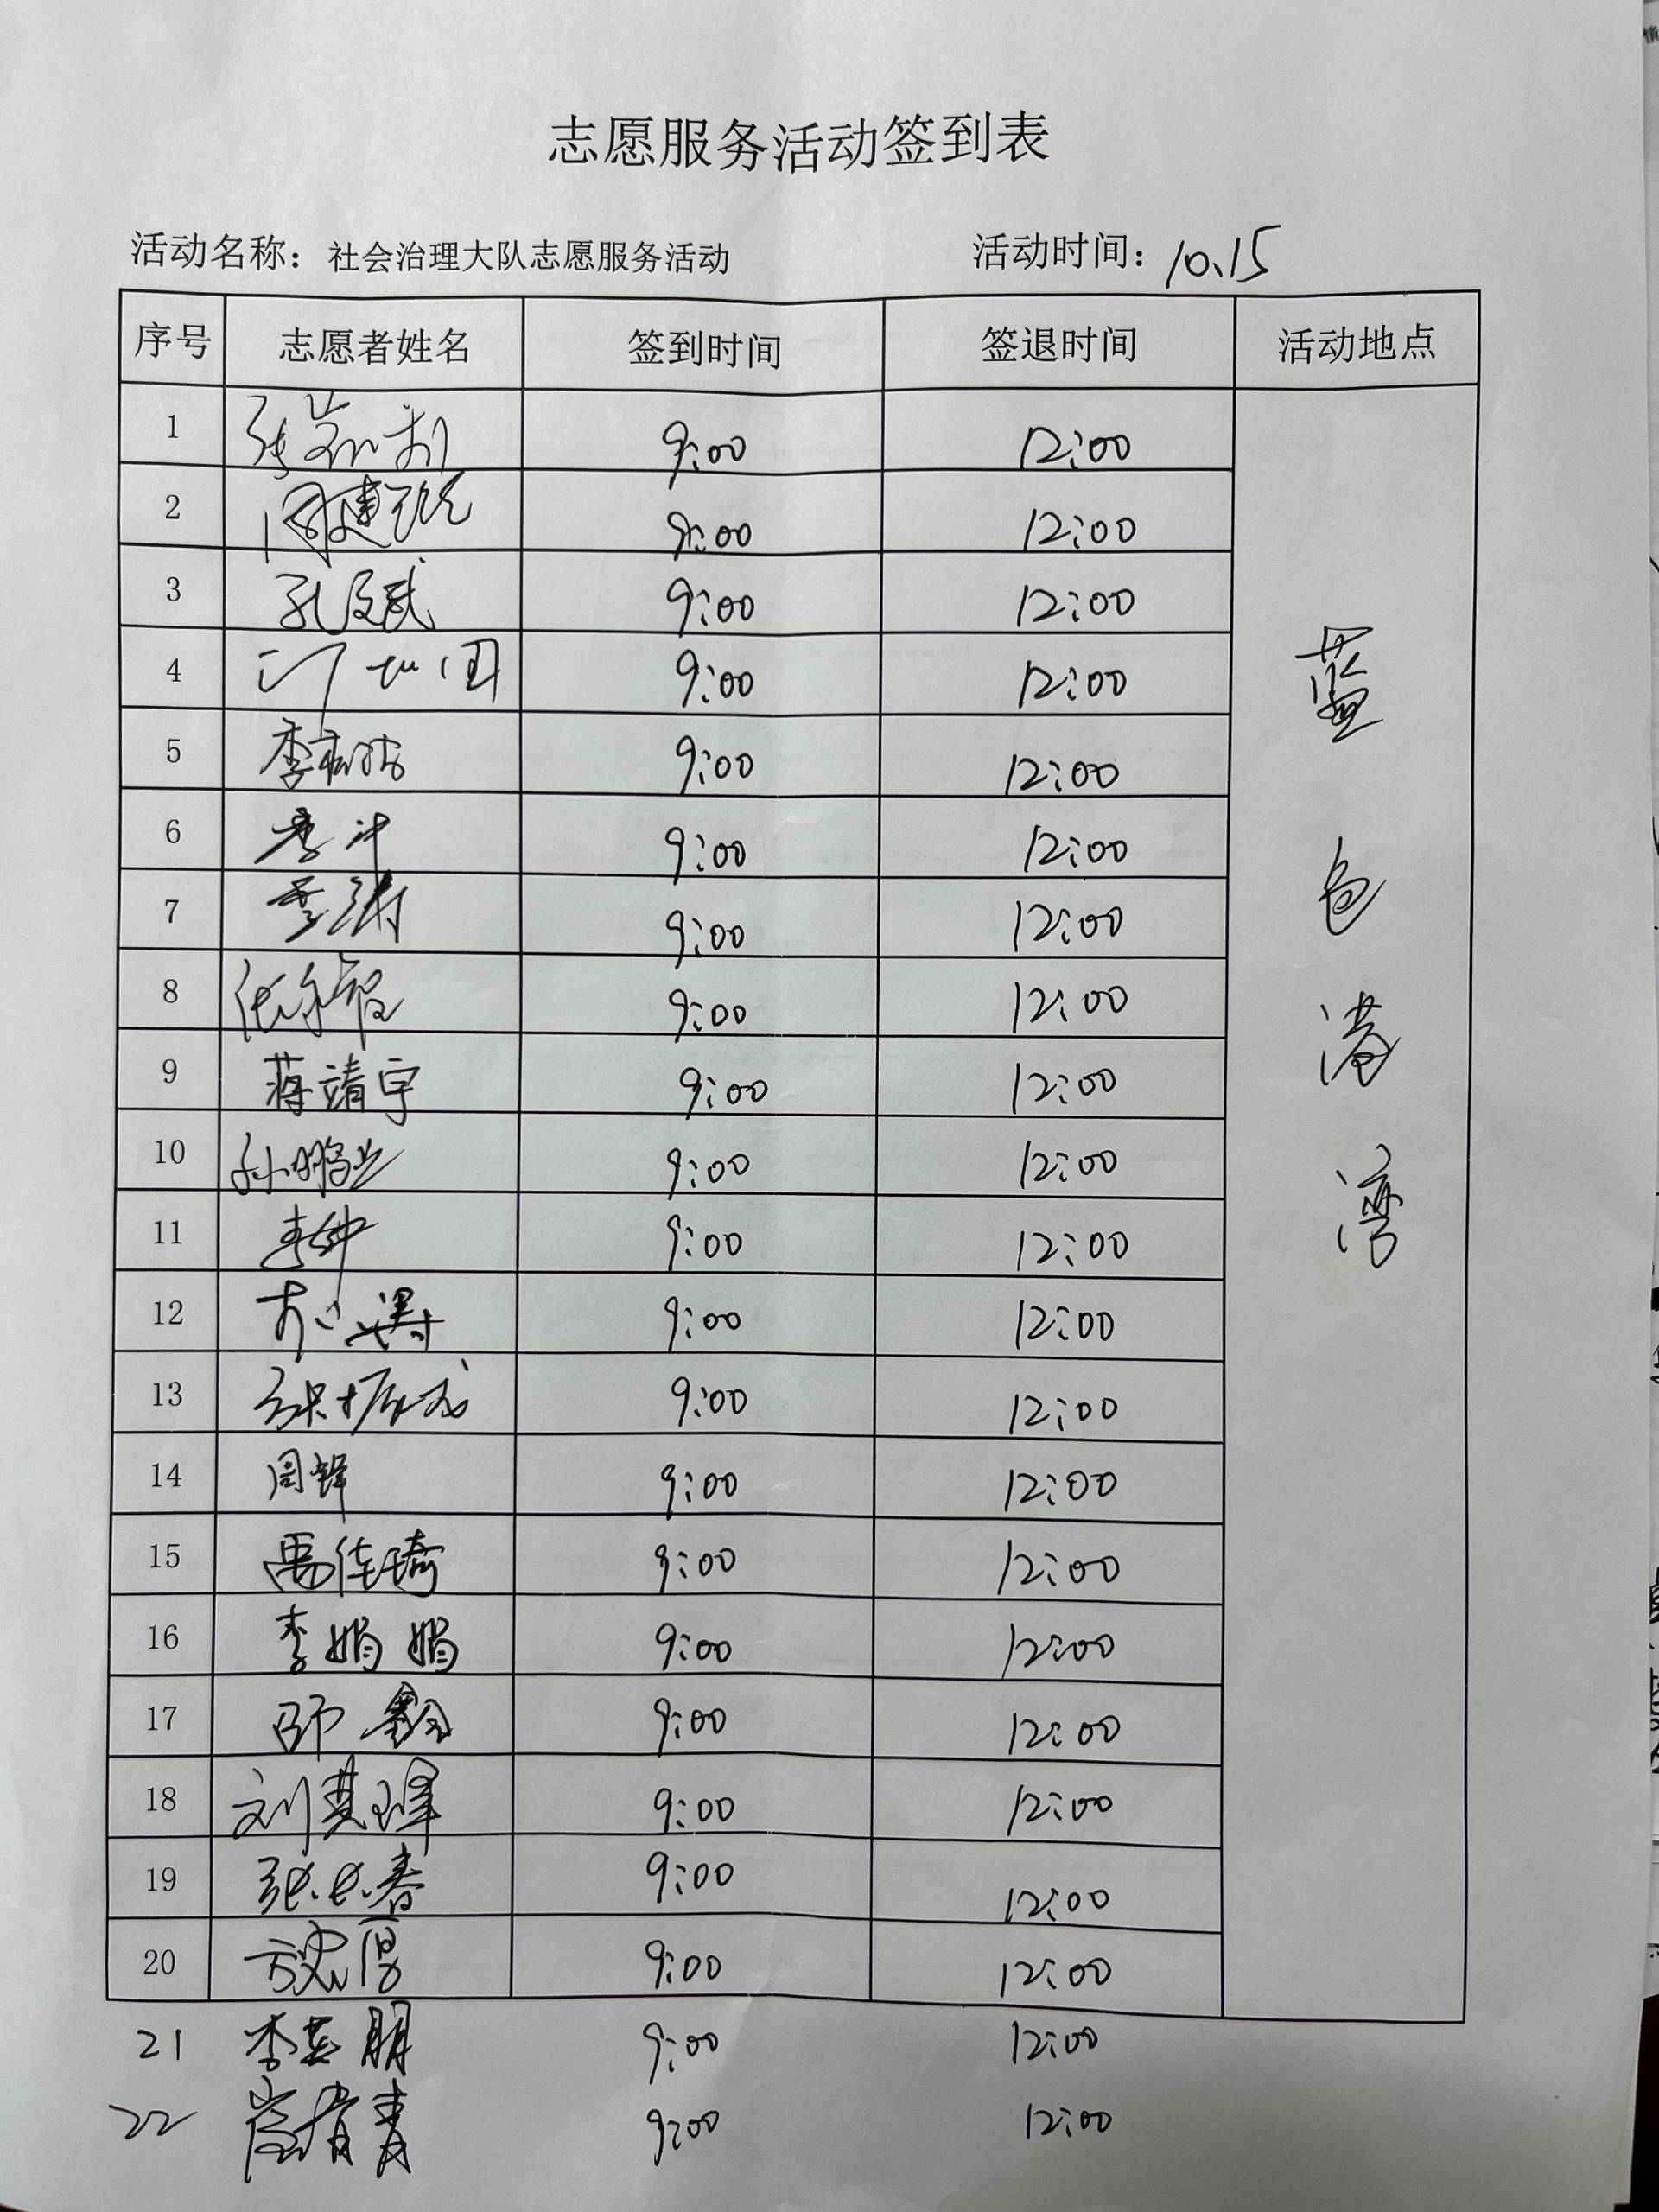 志愿服务活动签到表
活动名称：社会治理大队志愿服务活动 活动时间：10、15
序号 志愿者姓名 签到时间 签退时间 活动地点
1 9:00 12:00
2 周建 9:00 12:00
3 孔 9:00 12:00
4 9:00 12:00
5 李 9:00 12:00
6 李 9:00 12:00
7 李涛 9:00 12:00
8 9:00 12:00
9 蒋靖宇 9:00 12:00
10 孙鹏 9:00 12:00
11 9:00 12:00
12 9:00 12:00
13 张振 9:00 12:00
14 周锋 9:00 12:00
15 禹佳琦 9:00 12:00
16 李娟娟 9:00 12:00
17 师 9:00 12:00
18 刘 9:00 12:00
19 张长春 9:00 12:00
20 9:00 12:00
21 李英朋 9:00 12:00
22 青 9:00 12:00
蓝色港湾